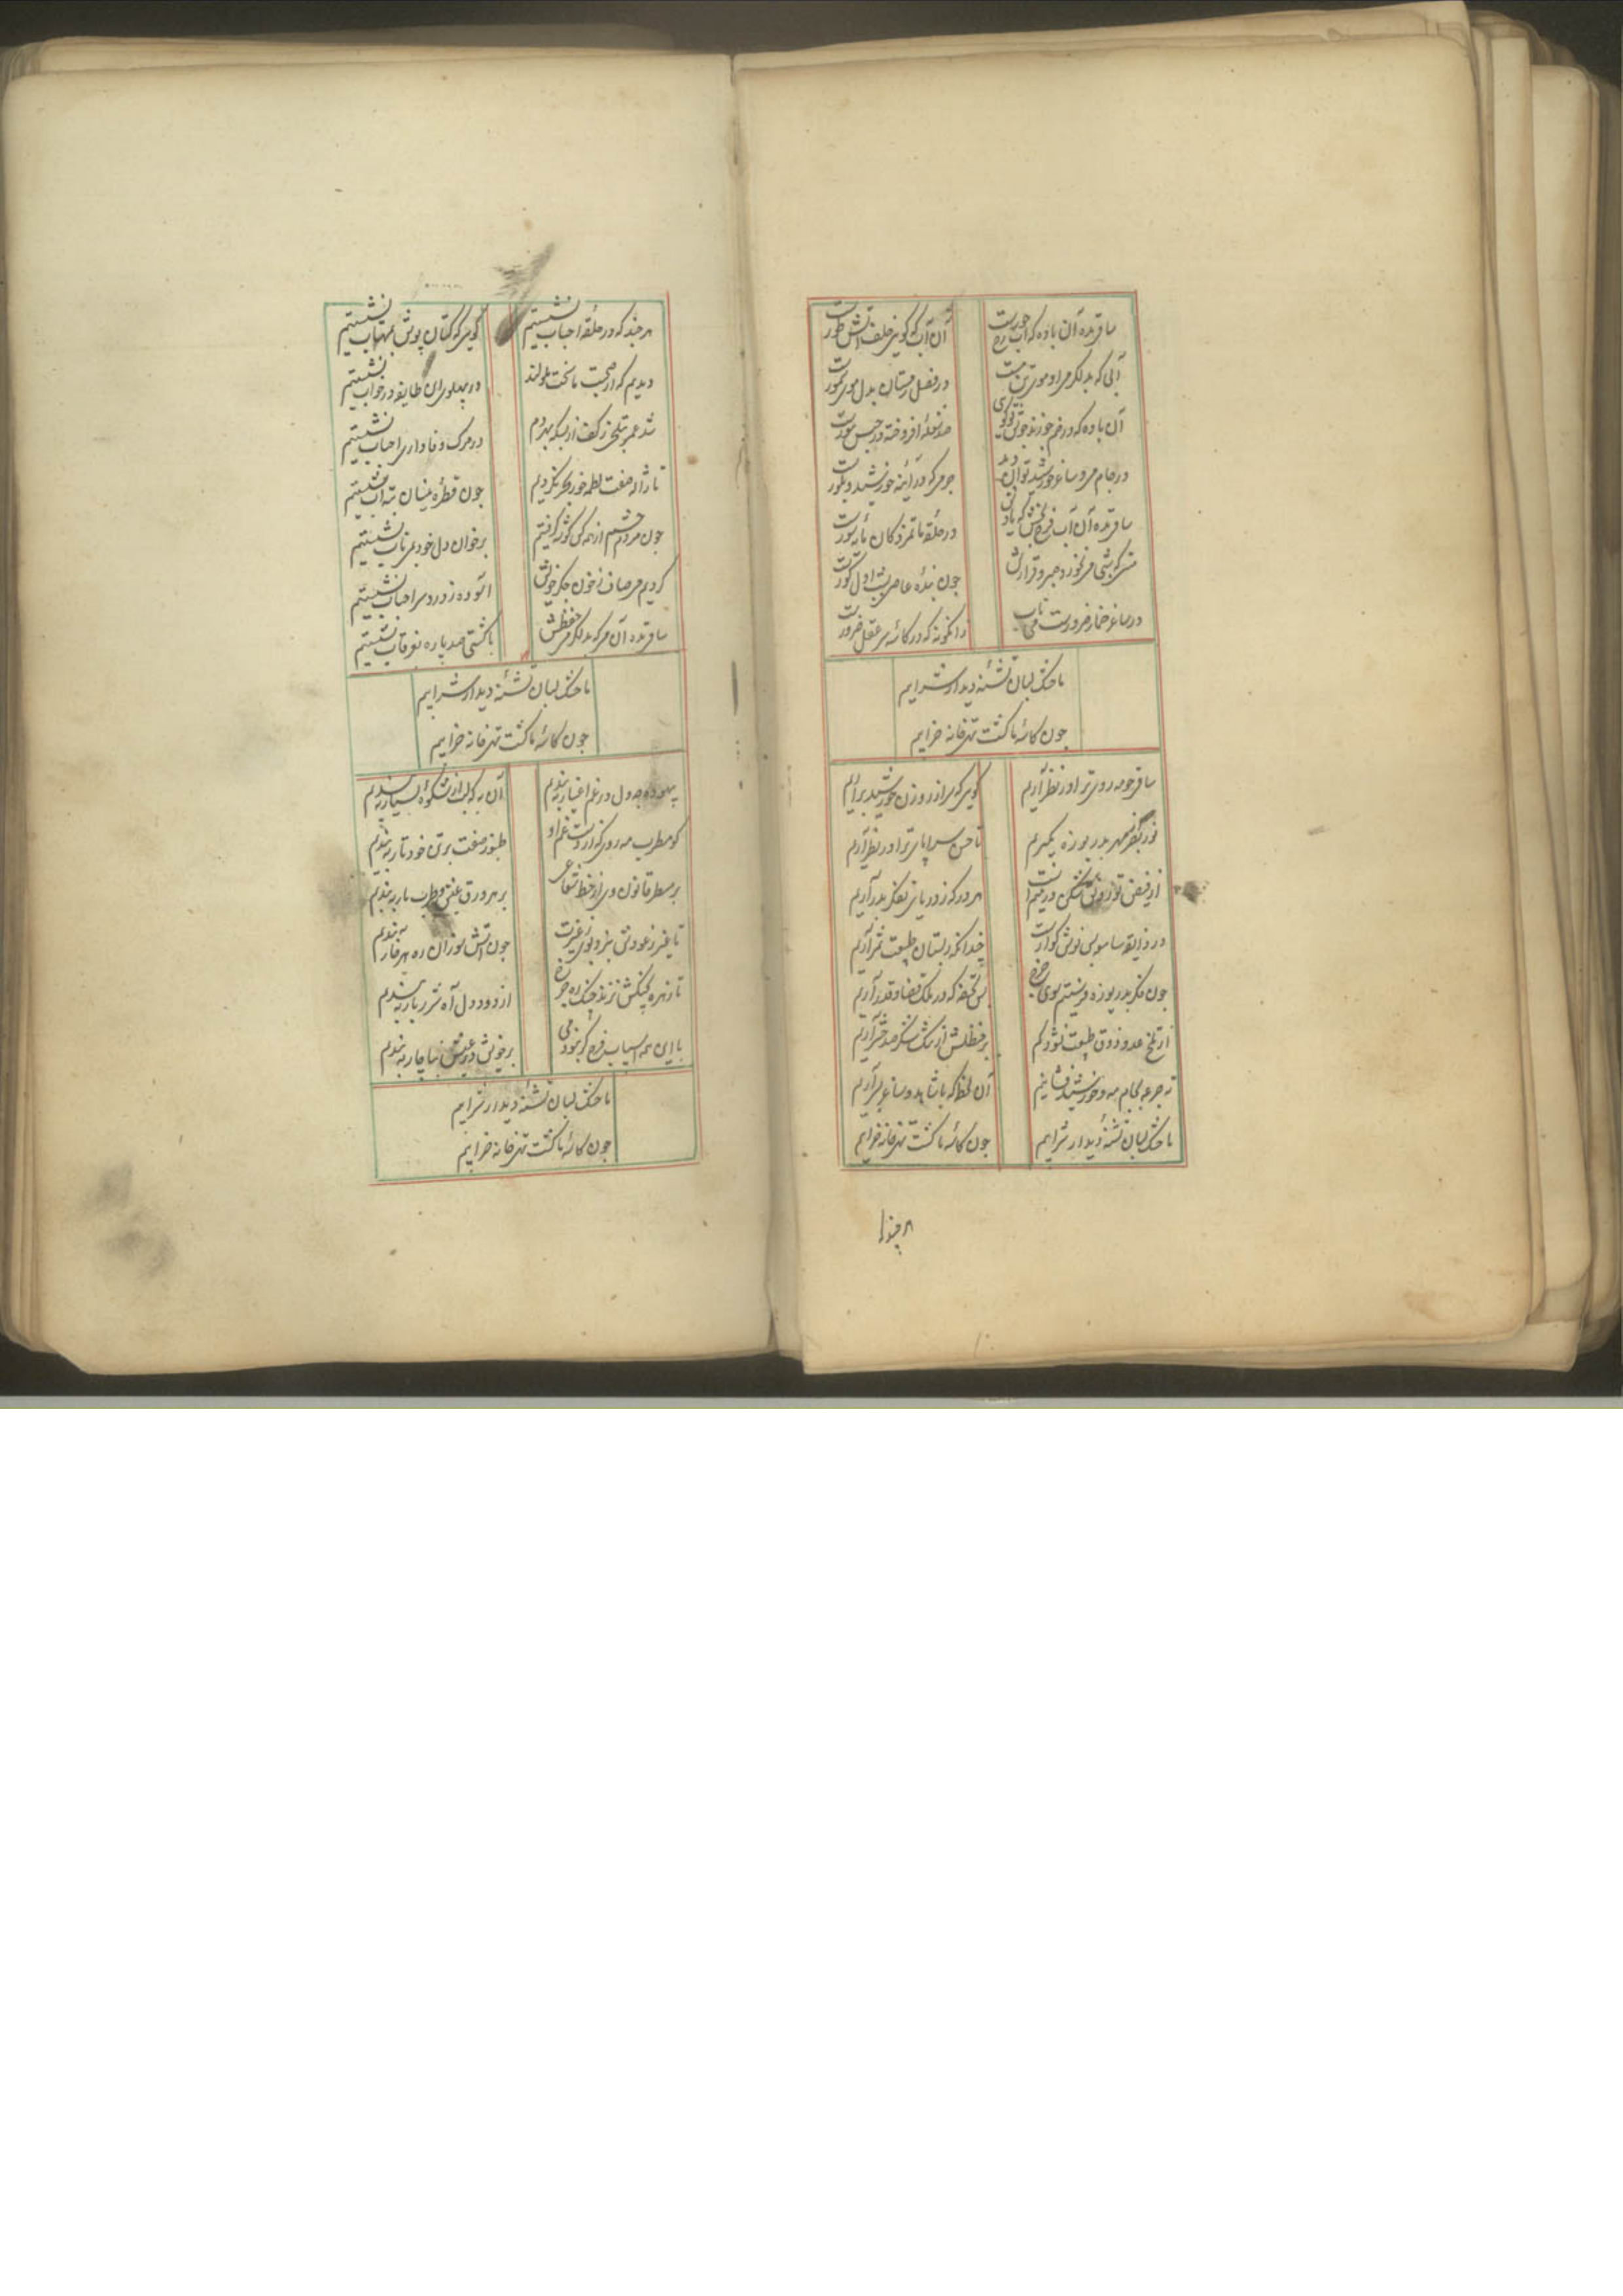 ساقی بده آن باده که آب رخ حورست
آن آب که گویی خلف آتش طورست
آبی که بد لکرمی او موی
در فصل زمستان بدل موی سمورست
آن باده که در خم
صد شعله افروخته در جیب
در جام می و ساغر خورشید توان دید
جوهر که در آئینه خورشید و بلورست
ساقی بده آن آب فرح بخش که
در حلقه ماتمزدکان مایه سورست
صبر و قرارش
چون بنده عاصی شب اول کورست
در ساغر خمار ضرورست می ناب
زانکونه که در کاسه سر عقل ضرورست
ما خشک لبان تشنه دیدار شرابیم
چون کاسه ما کشت تهی خانه خرابیم
ساقی چو مه روی ترا در نظر آریم
کویی که سر از روزن خورشید برآریم
نور بدریوزه بگیریم
تا حسن سراپای ترا در نظر آریم
از فیض تو
هر در که ز دریای تفکر بدر آریم
در ذایقه سامعه بس نوش کوارست
چندانکه ز بستان طبیعت ثمر آریم
چون فکر بدریوزه فرستیم سوی
بس تحفه که در ملک قضا و قدر آریم
از تلخی عدو ذوق طبیعت نشود کم
بر حنظلش از تنک شکر صد حشر آریم
ته جرعه بجام مه و خورشید فشانیم
آن لحظه که با شاهد و ساغر بسر آریم
ما خشک لبان تشنه دیدار شرابیم
چون کاسه ما کشت تهی خانه خرابیم
هر چند که
هر چند که در حلقه احباب نشستیم
کویی که کتان پوش بمهتاب نشستیم
دیدیم که از صحبت ما سخت ملولند
در پهلوی این طایفه در خواب نشستیم
شد عمر بتلخی ز کف از بسکه بهر دم
در مرک وفاداری احباب نشستیم
تا ژاله صفت لطمه خور بحر نکردیم
چون قطره نیسان بته آب نشستیم
چون مردم چشم از همه کس کوشه کرفتیم
بر خوان دل خود بمی ناب نشستیم
کردیم می صاف ز خون جکر خویش
آسوده ز درد سر احباب نشستیم
ساقی بده آن می که بد
با کشتی صد پاره بغرقاب نشستیم
ما خشک لبان تشنه دیدار شرابیم
چون کاسه ما کشت تهی خانه خرابیم
بیهوده چه دل در غم اغیار ببندیم
آن به که لب از شکوه بسیار ببندیم
کو مطرب مه روی که از رشته غم او
طنبور صفت بر تن خود تار ببندیم
بر مسطر قانون وی از خط شعاعی
بر هر ورق عیش و طرب بار ببندیم
تا غیر ز عودش نبرد بوی ز غیرت
چون آتش سوزان ره هر خار ببندیم
تا زهره بچنکش نزند چنک
از دود دل آه شرربار ببندیم
با این همه اسباب فرح کر نبود می
بر خویش در عیش بناچار ببندیم
ما خشک لبان تشنه دیدار شرابیم
چون کاسه ما کشت تهی خانه خرابیم